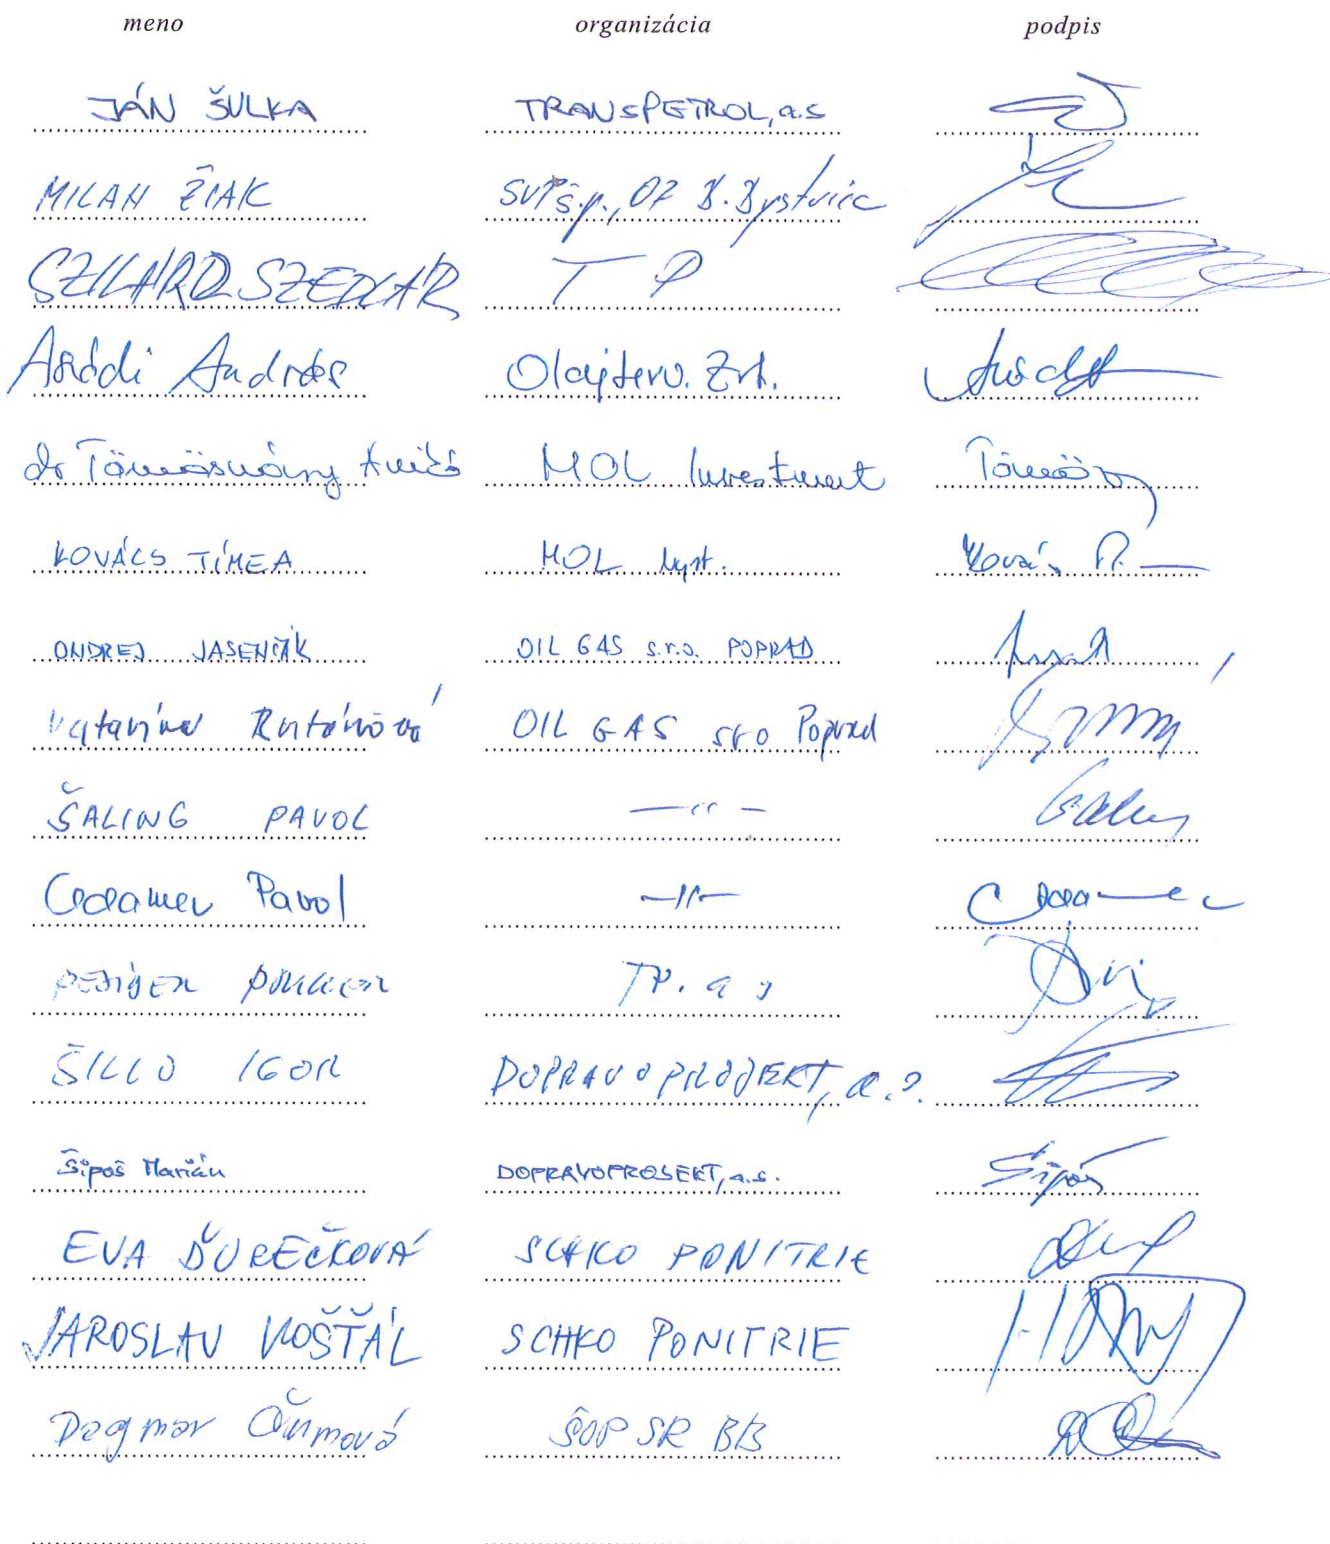 meno organizácia podpis
JÁN ŠULKA TRANSPETROL, a.s
MILAN ŽIAK SVP š.p., OZ B. Bystrica
SZILÁRD SZEDLÁR T P
Aródi András Olajterv. Zrt.
dr Tömösváry Anikó MOL Investment Tömös
KOVÁCS TÍMEA MOL Nyrt. Kovács T.
ONDREJ JASENČÁK OIL GAS s.r.o. POPRAD
Katarína OIL GAS sro Poprad
ŠALING PAVOL —〃—
Pavol —〃—
TP. a s
ŠILLO IGOR DOPRAVOPROJEKT, a.s.
Šipoš Marián DOPRAVOPROJEKT, a.s. Šipoš
EVA ĎUREČKOVÁ SCHKO PONITRIE
JAROSLAV KOŠŤÁL SCHKO PONITRIE
Dagmar ŠOP SR BB